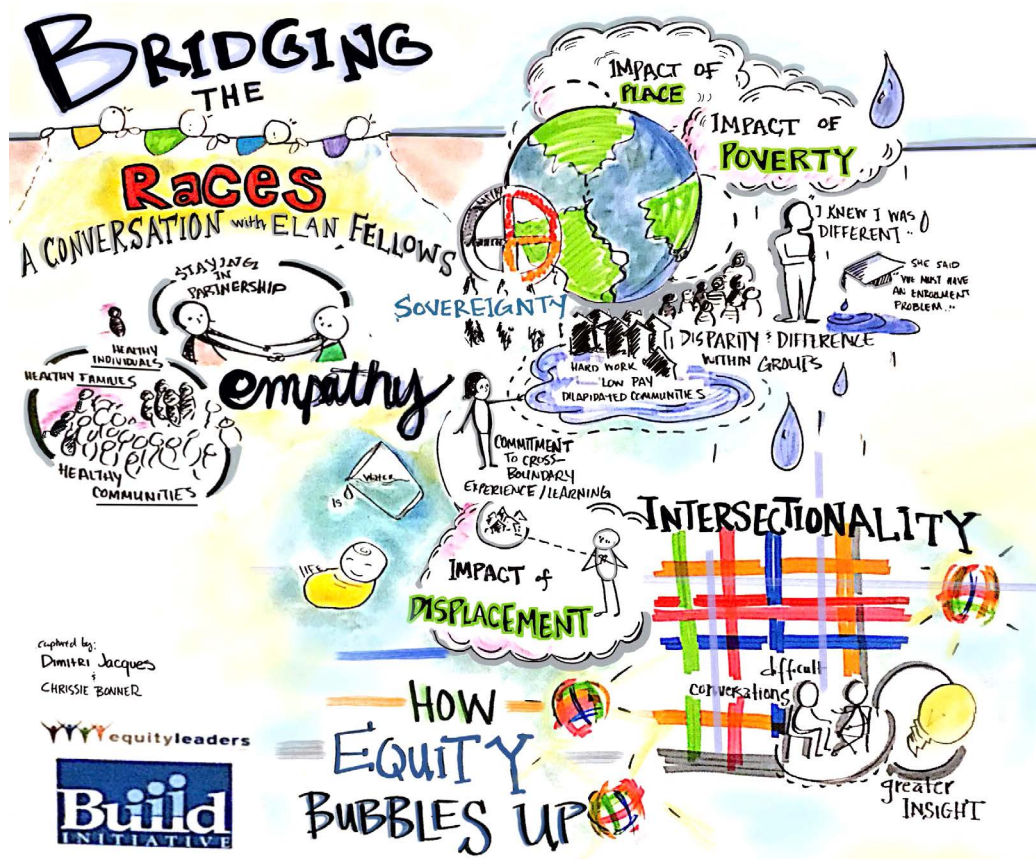 BRIDGING
THE
RACES
A CONVERSATION with ELAN FELLOWS
STAYING
IN
PARTNERSHIP
HEALTHY
INDIVIDUALS
HEALTHY FAMILIES
HEALTHY
COMMUNITIES
empathy
IMPACT OF
PLACE
IMPACT OF
POVERTY
SOVEREIGNTY
"I KNEW I WAS
DIFFERENT.."
SHE SAID
"WE MUST HAVE
AN ENROLLMENT
PROBLEM.."
DISPARITY & DIFFERENCE
WITHIN GROUPS
HARD WORK
LOW PAY
DILAPIDATED COMMUNITIES
COMMITMENT
TO CROSS-
BOUNDARY
EXPERIENCE/LEARNING
WATER
IS
LIFE
IMPACT of
DISPLACEMENT
INTERSECTIONALITY
difficult
conversations
greater
INSIGHT
HOW
EQUITY
BUBBLES UP
captured by:
Dimitri Jacques
&
CHRISSIE BONNER
equityleaders
Build
INITIATIVE